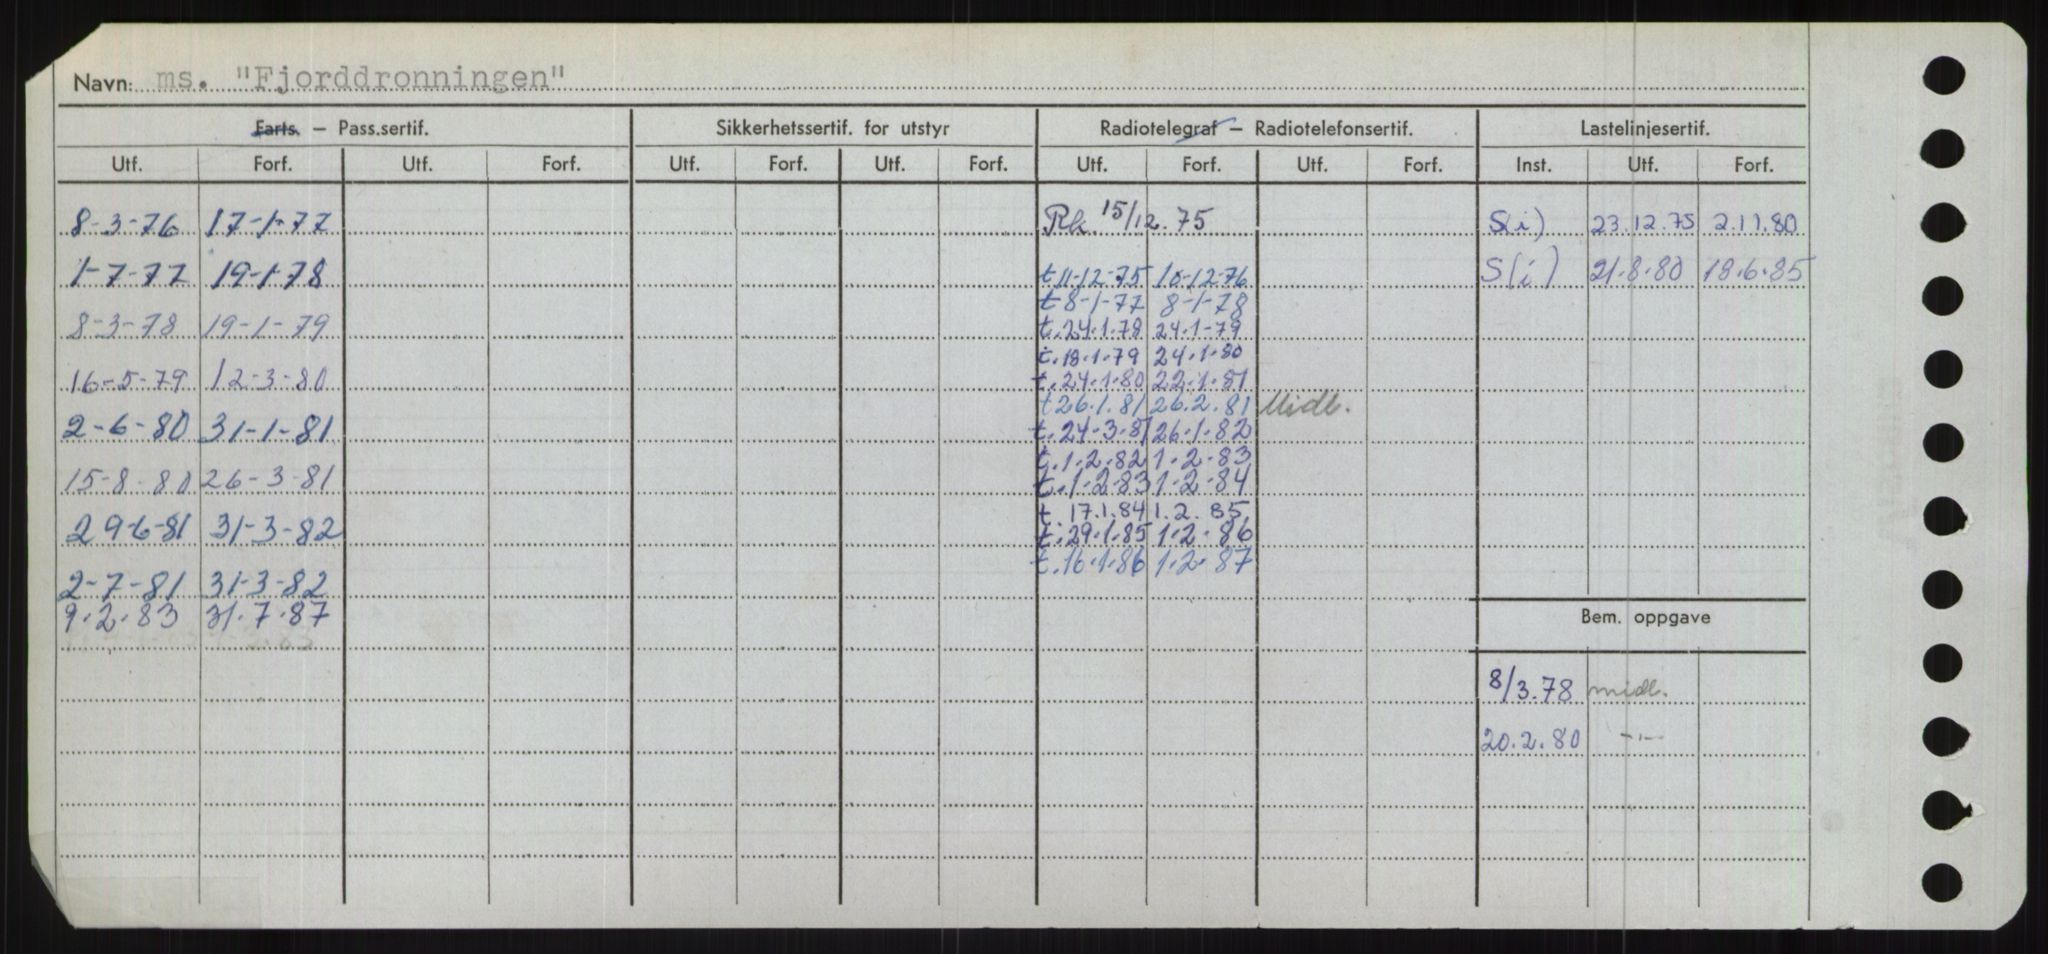 Navn: ms. "Fjorddronningen"
Farts. – Pass.sertif. Sikkerhetssertif. for utstyr Radiotelegraf – Radiotelefonsertif. Lastelinjesertif.
Utf. Forf. Utf. Forf. Utf. Forf. Utf. Forf. Utf. Forf. Utf. Forf. Inst. Utf. Forf.
8-3-76 17-1-77 Rk. 15/12.75 S(i) 23.12.75 2.11.80
1-7-77 19-1-78 t.11-12-75 10-12-76 S(i) 21.8.80 18.6.85
t 8-1-77 8-1-78
8-3-78 19-1-79 t.24.1.78 24.1-79
t.18.1.79 24.1.80
16-5-79 12-3-80 t.24.1.80 22.1.81
t 26.1.81 26.2.81 Midl.
2-6-80 31-1-81 t.24-3-81 26.1.82
t.1.2.82 1.2.83
15-8-80 26-3-81 t.1.2.83 1.2.84
t. 17.1.84 1.2.85
29-6-81 31-3-82 t.29.1.85 1.2.86
t.16.1.86 1.2.87
2-7-81 31-3-82
9.2.83 31.7.87 Bem. oppgave
8/3.78 midl.
20.2.80 -"-